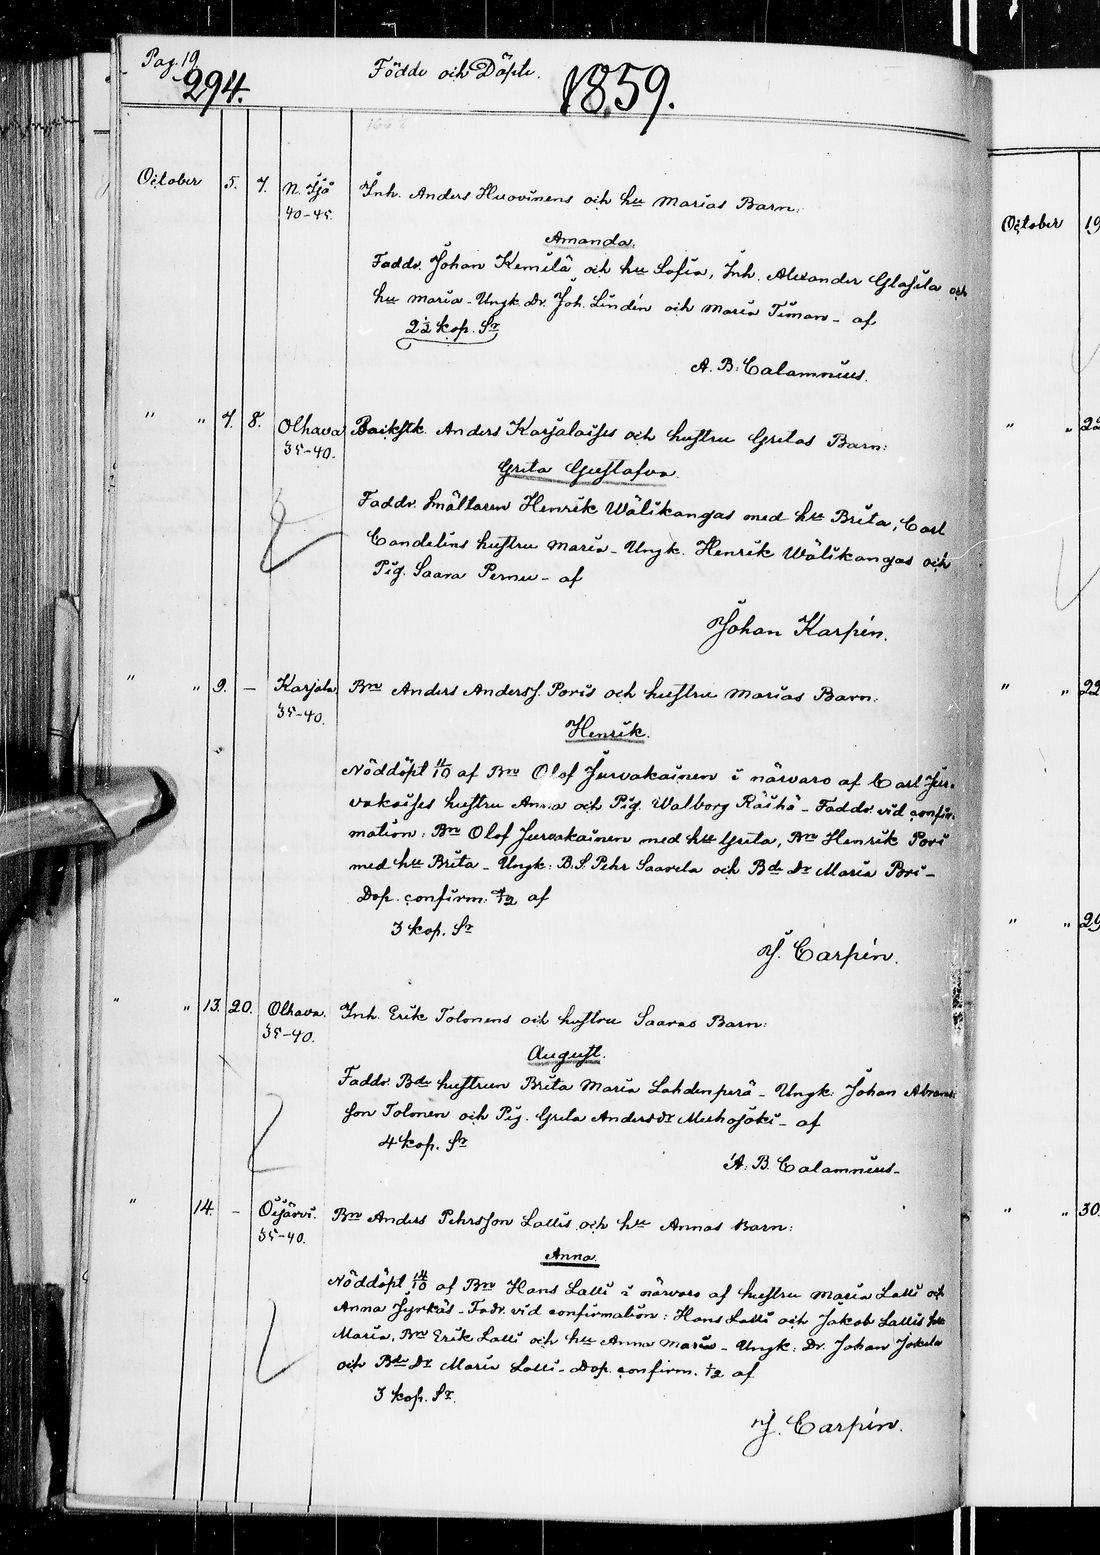 Pag. 19
294.
Födde och Döpte.
1859.
October 5. 7. N. Ijo Inh. Anders Huovinens och hu Marias Barn:
40-45
Amanda.
Faddr. Johan Kemilä och hu Sofia, Inh. Alexander Glasila och
hu Maria - Ungk. Dr. Joh. Lindén och Maria Timan - af
2½ kop. Sr
A. B. Calamnius.
" " 7. 8. Olhava Backstk. Anders Karjalaises och hustru Gretas Barn:
35-40.
Greta Gustafva.
Faddr. Smältaren Henrik Wälikangas med hu Brita, Carl
Candelins hustru Maria - Ungk. Henrik Wälikangas och
Pig. Saara Pernu - af
Johan Karpin.
" " 9. - Karjala Bn Anders Anderss. Poris och hustru Marias Barn:
35-40.
Henrik.
Nöddöpt 11/10 af Bn Olof Jurvakainen i närvaro af Carl Jur-
vakaises hustru Anna och Pig. Walborg Räihä - Faddr. vid confir-
mation: Bn Olof Jurvakainen med hu Greta, Bn Henrik Pori
med hu Brita - Ungk: B.S. Pehr Saarela och Bd. Dr Maria Pori -
Dop. confirm. af
3 kop. Sr
J. Carpin.
" " 13. 20. Olhava. Inh. Erik Tolonens och hustru Saaras Barn:
35-40.
August.
Faddr. Bde hustrun Brita Maria Lahdenperä - Ungk: Johan Abrams
son Tolonen och Pig. Greta Andersdr Muhojoki - af
4 kop. Sr
A. B. Calamnius -
" 14. - Oijärvi. Bn Anders Pehrsson Lallis och hu Annas Barn:
35-40.
Anna.
Nöddöpt 14/10 af Bn Hans Lalli i närvaro af hustru Maria Lalli och
Anna Jyrkäs - Fadr. vid confirmation: Hans Lalli och Jakob Lallis hu
Maria, Bn Erik Lalli och hu Anna Maria - Ungk: Dr. Johan Jokela
och Bde Dr Maria Lalli - Dop. confirm. af
3 kop. Sr.
J. Carpin.
October 19
" " 22
" " 22
" " 29
" " 30.